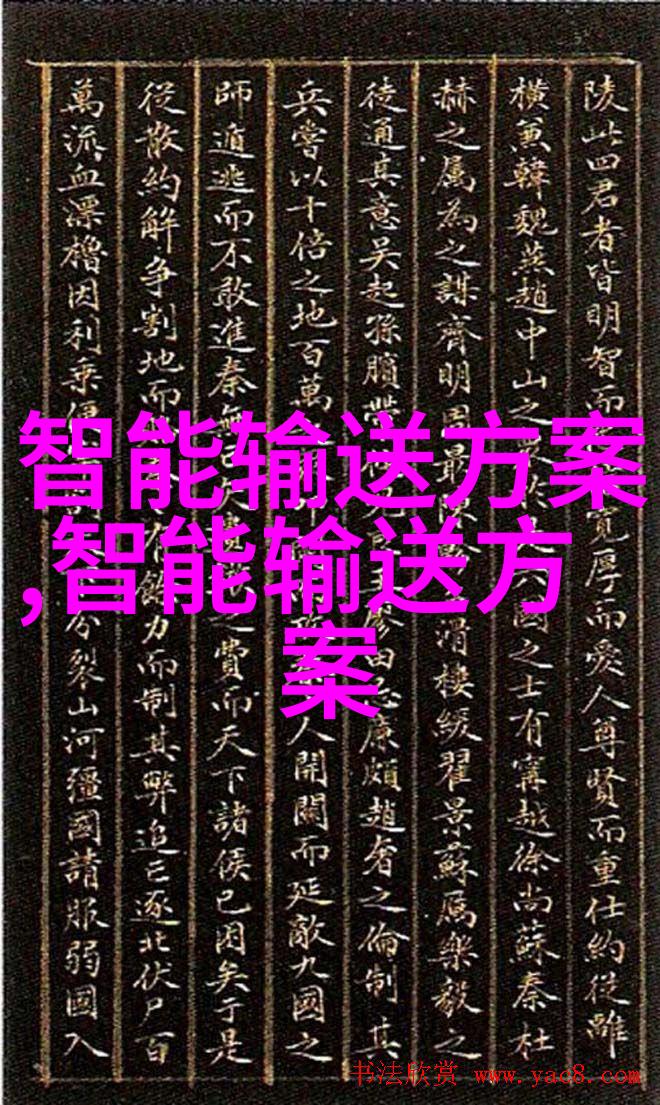 陵此四君者皆明智而寬厚而愛人尊賢而重仕約從離
橫兼韓魏燕趙中山之國之士有甯越徐尚蘇秦杜
赫之屬為之謀齊明周最滑樓緩翟景蘇厲樂毅之
徒通其意吳起孫臏帶廖田忌廉頗趙奢之倫制其
兵嘗以十倍之地百萬人開關而延敵九國之
師遁逃而不敢進秦無之費而天下諸侯已困矣于是
從散約解爭割地而力而制其弊追亡逐北伏尸百
萬流血漂櫓因利乘便分裂山河彊國請服弱國入
智能输送方案
,智能输送方
案
书法欣赏 www.yac8.com